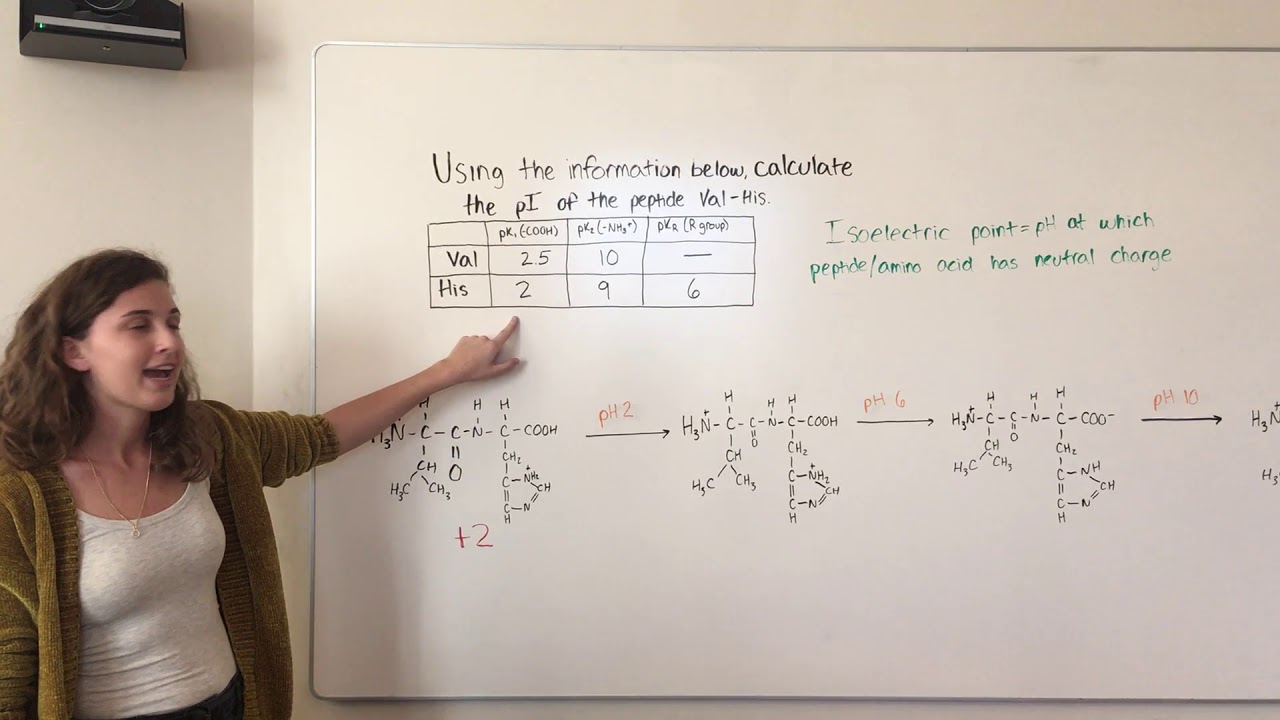 Using the information below, calculate
the pI of the peptide Val-His.
pK₁ (-COOH) pK₂ (-NH₃⁺) pKR (R group)
Val 2.5 10 —
His 2 9 6
Isoelectric point = pH at which
peptide/amino acid has neutral charge
pH 2
pH 6
pH 10
H H H
H₃N⁺-C-C-N-C-COOH
CH O CH₂
H₃C CH₃ C-NH₂⁺
CH
C-N
H
+2
H H H
H₃N⁺-C-C-N-C-COOH
O
CH CH₂
H₃C CH₃ C-NH₂⁺
CH
C-N
H
H H H
H₃N⁺-C-C-N-C-COO⁻
O
CH CH₂
H₃C CH₃ C-NH
CH
C-N
H
H₃N⁺
H₃